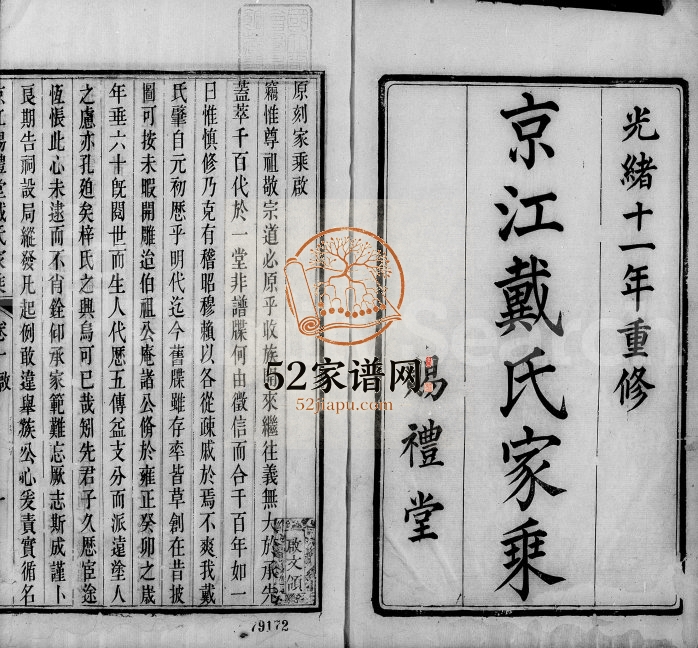 光緒十一年重修
京江戴氏家乗
賜禮堂
原刻家乘啟
竊惟尊祖敬宗道必原乎收族開來繼往義無大於承先
蓋萃千百代於一堂非譜牒何由徵信而合千百年如一
日惟慎修乃克有稽昭穆賴以各從疎戚於焉不爽我戴
氏肇自元初歷乎明代迄今舊牒雖存率皆草創在昔披
圖可按未暇開雕迨伯祖公庵諸公脩於雍正癸卯之歲
年垂六十旣閱世而生人代歷五傳益支分而派遠塗人
之慮亦孔廹矣梓氏之興烏可已哉矧先君子久歷宦途
恆悵此心未逮而不肖銓仰承家範難忘厥志斯成謹卜
良期告祠設局縱發凡起例敢違舉族公心爰責實循名
京江賜禮堂戴氏家乗 卷一 啟 一
啟文傾
79172
52家谱网
52jiapu.com
Search